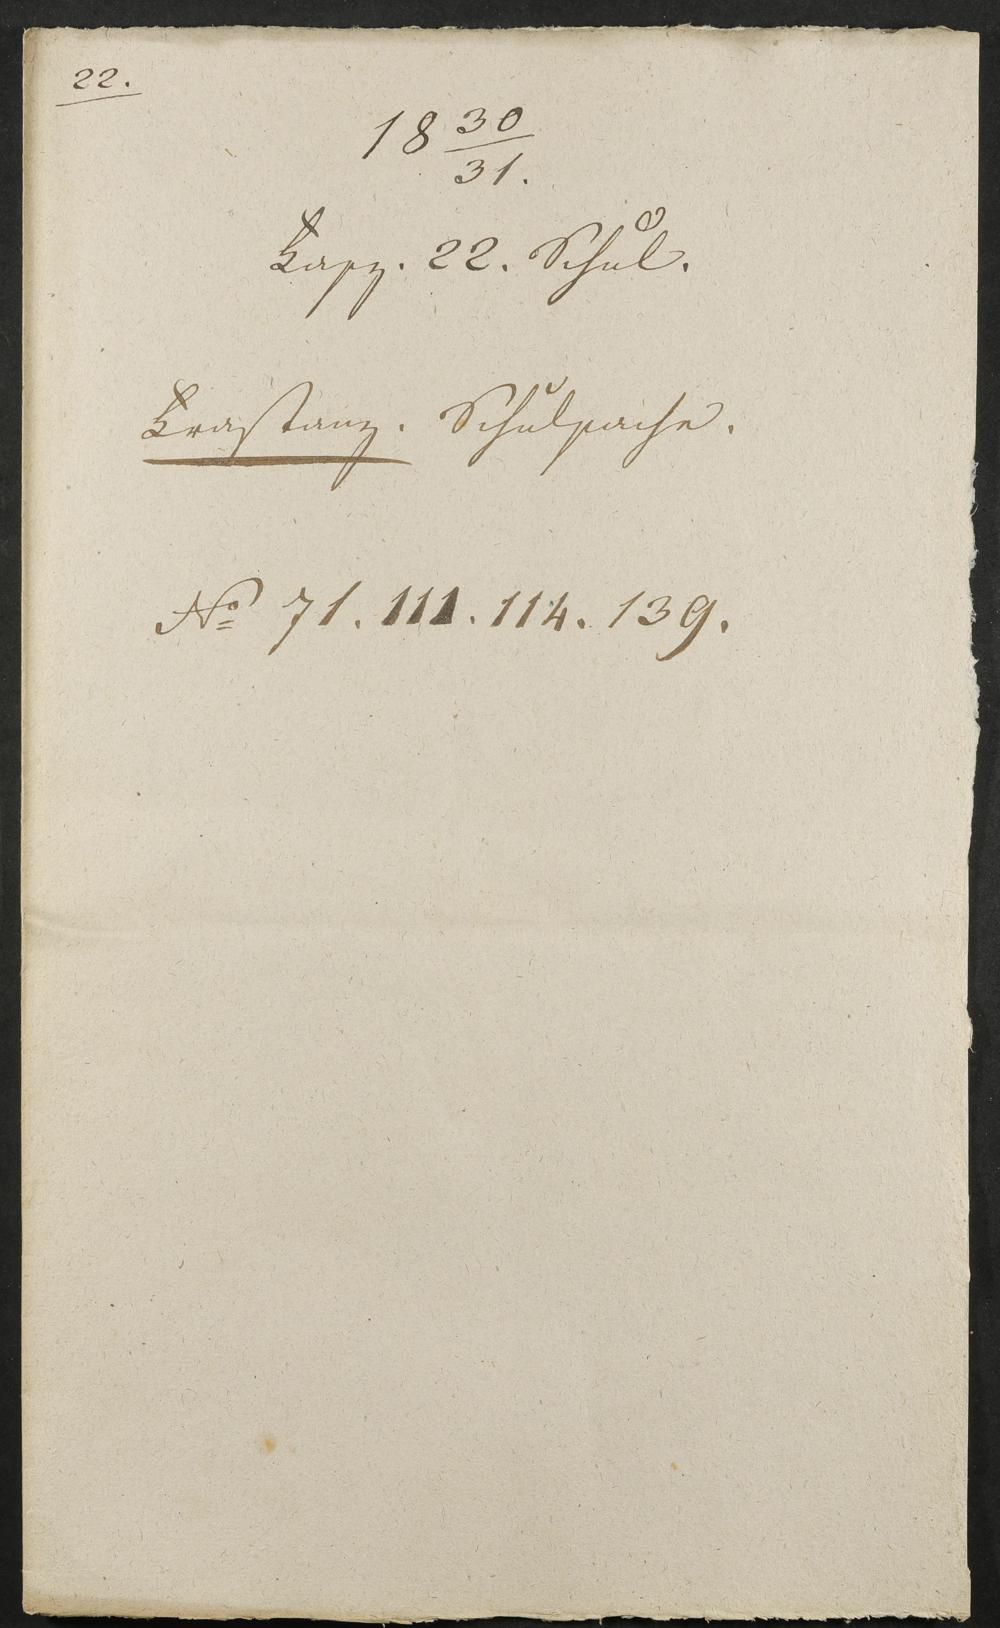 22.
18 30/31.
Fasz. 22. Schul.
Krastanz. Schulsache.
No 71. 111. 114. 139.